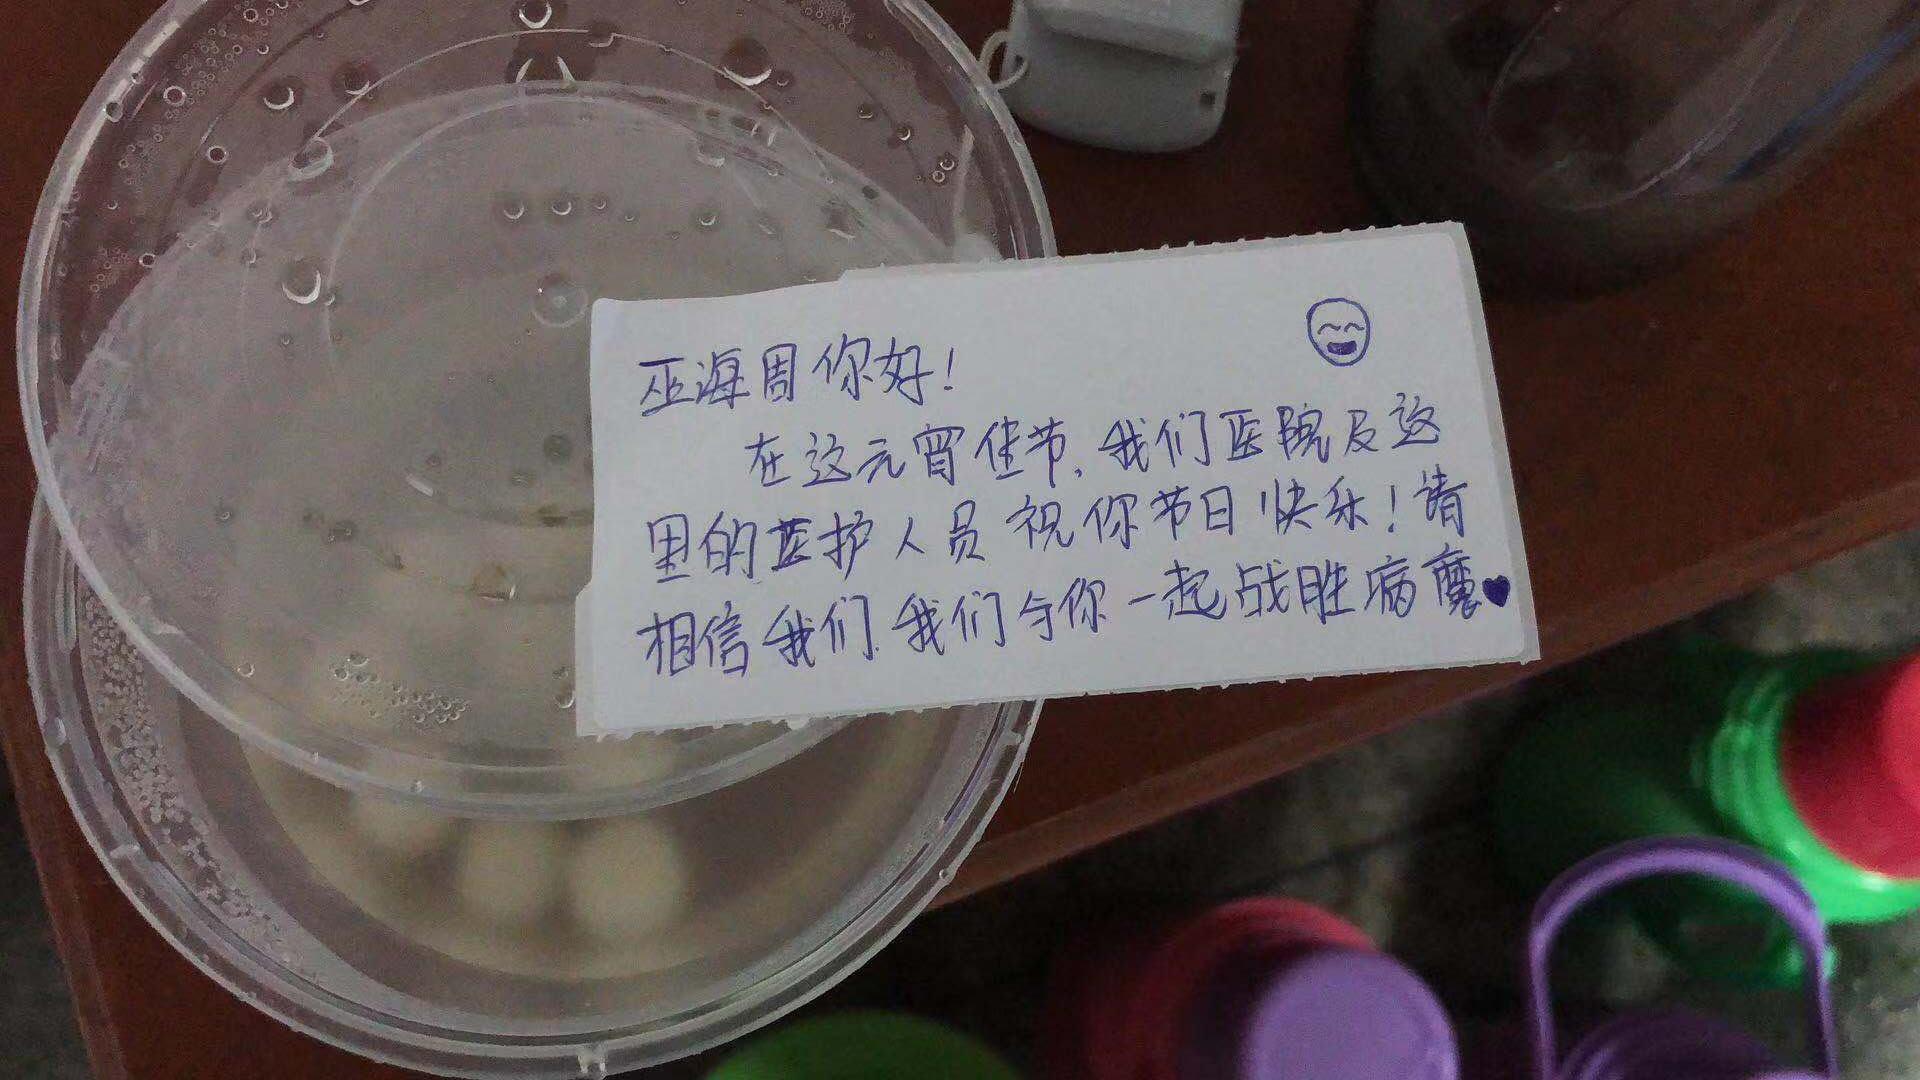 巫海周你好!
在这元宵佳节,我们医院及这
里的医护人员祝你节日快乐!请
相信我们,我们与你一起战胜病魔♥